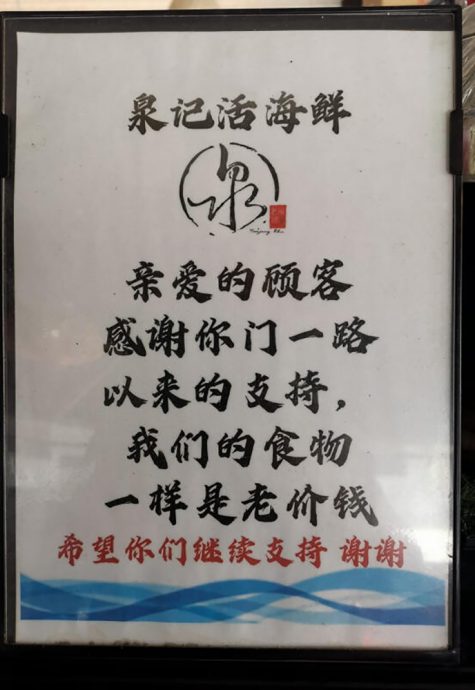 泉记活海鲜
泉
亲爱的顾客
感谢你门一路
以来的支持，
我们的食物
一样是老价钱
希望你们继续支持 谢谢